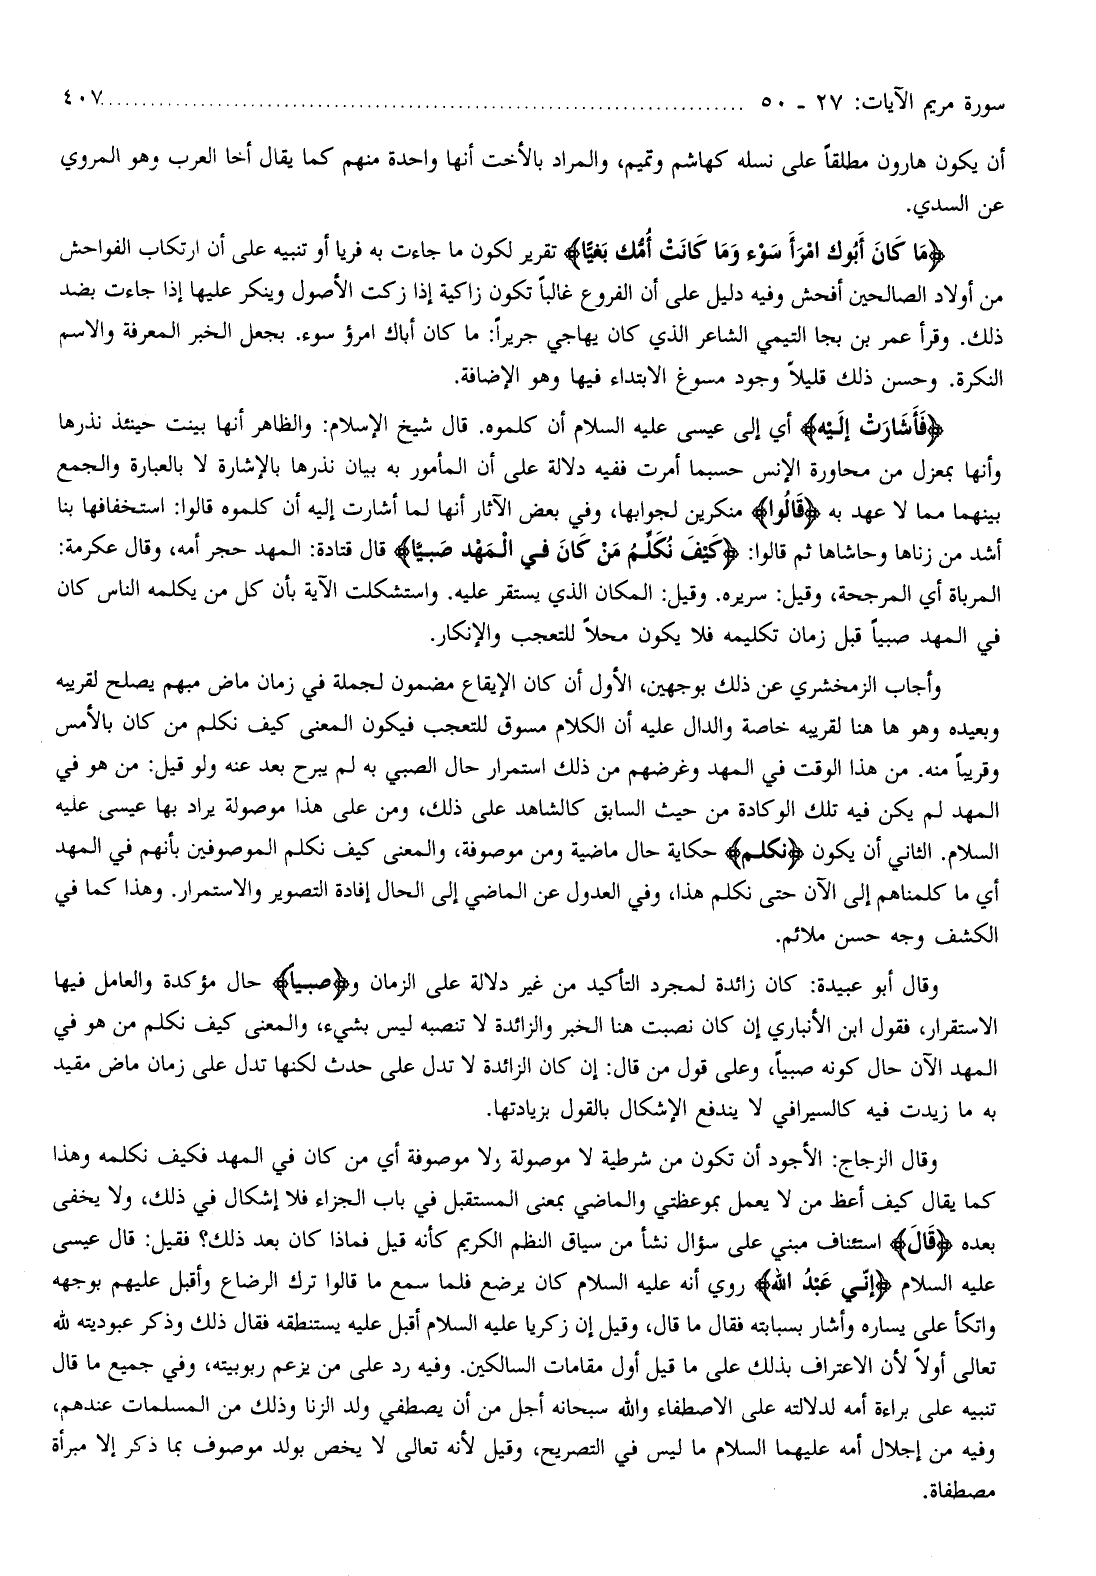 سورة مريم الآيات: ٢٧ ـ ٥٠ ........................................................................ ٤٠٧
أن يكون هارون مطلقاً على نسله كهاشم وتميم، والمراد بالأخت أنها واحدة منهم كما يقال أخا العرب وهو المروي
عن السدي.
﴿مَا كَانَ أَبُوك امْرَأَ سَوْء وَمَا كَانَتْ أُمُّك بَغيًّا﴾ تقرير لكون ما جاءت به فريا أو تنبيه على أن ارتكاب الفواحش
من أولاد الصالحين أفحش وفيه دليل على أن الفروع غالباً تكون زاكية إذا زكت الأصول وينكر عليها إذا جاءت بضد
ذلك. وقرأ عمر بن بجا التيمي الشاعر الذي كان يهاجي جريراً: ما كان أباك امرؤ سوء. بجعل الخبر المعرفة والاسم
النكرة. وحسن ذلك قليلاً وجود مسوغ الابتداء فيها وهو الإضافة.
﴿فَأَشَارَتْ إلَيْه﴾ أي إلى عيسى عليه السلام أن كلموه. قال شيخ الإسلام: والظاهر أنها بينت حينئذ نذرها
وأنها بمعزل من محاورة الإنس حسبما أمرت ففيه دلالة على أن المأمور به بيان نذرها بالإشارة لا بالعبارة والجمع
بينهما مما لا عهد به ﴿قَالُوا﴾ منكرين لجوابها، وفي بعض الآثار أنها لما أشارت إليه أن كلموه قالوا: استخفافها بنا
أشد من زناها وحاشاها ثم قالوا: ﴿كَيْفَ نُكَلِّمُ مَنْ كَانَ في الْمَهْد صَبيًّا﴾ قال قتادة: المهد حجر أمه، وقال عكرمة:
المرباة أي المرجحة، وقيل: سريره. وقيل: المكان الذي يستقر عليه. واستشكلت الآية بأن كل من يكلمه الناس كان
في المهد صبياً قبل زمان تكليمه فلا يكون محلاً للتعجب والإنكار.
وأجاب الزمخشري عن ذلك بوجهين، الأول أن كان الإيقاع مضمون لجملة في زمان ماض مبهم يصلح لقريبه
وبعيده وهو ها هنا لقريبه خاصة والدال عليه أن الكلام مسوق للتعجب فيكون المعنى كيف نكلم من كان بالأمس
وقريباً منه. من هذا الوقت في المهد وغرضهم من ذلك استمرار حال الصبي به لم يبرح بعد عنه ولو قيل: من هو في
المهد لم يكن فيه تلك الوكادة من حيث السابق كالشاهد على ذلك، ومن على هذا موصولة يراد بها عيسى عليه
السلام. الثاني أن يكون ﴿نكلم﴾ حكاية حال ماضية ومن موصوفة، والمعنى كيف نكلم الموصوفين بأنهم في المهد
أي ما كلمناهم إلى الآن حتى نكلم هذا، وفي العدول عن الماضي إلى الحال إفادة التصوير والاستمرار. وهذا كما في
الكشف وجه حسن ملائم.
وقال أبو عبيدة: كان زائدة لمجرد التأكيد من غير دلالة على الزمان و﴿صبياً﴾ حال مؤكدة والعامل فيها
الاستقرار، فقول ابن الأنباري إن كان نصبت هنا الخبر والزائدة لا تنصبه ليس بشيء، والمعنى كيف نكلم من هو في
المهد الآن حال كونه صبياً، وعلى قول من قال: إن كان الزائدة لا تدل على حدث لكنها تدل على زمان ماض مقيد
به ما زيدت فيه كالسيرافي لا يندفع الإشكال بالقول بزيادتها.
وقال الزجاج: الأجود أن تكون من شرطية لا موصولة ولا موصوفة أي من كان في المهد فكيف نكلمه وهذا
كما يقال كيف أعظ من لا يعمل بموعظتي والماضي بمعنى المستقبل في باب الجزاء فلا إشكال في ذلك، ولا يخفى
بعده ﴿قَالَ﴾ استئناف مبني على سؤال نشأ من سياق النظم الكريم كأنه قيل فماذا كان بعد ذلك؟ فقيل: قال عيسى
عليه السلام ﴿إنّي عَبْدُ الله﴾ روي أنه عليه السلام كان يرضع فلما سمع ما قالوا ترك الرضاع وأقبل عليهم بوجهه
واتكأ على يساره وأشار بسبابته فقال ما قال، وقيل إن زكريا عليه السلام أقبل عليه يستنطقه فقال ذلك وذكر عبوديته لله
تعالى أولاً لأن الاعتراف بذلك على ما قيل أول مقامات السالكين. وفيه رد على من يزعم ربوبيته، وفي جميع ما قال
تنبيه على براءة أمه لدلالته على الاصطفاء والله سبحانه أجل من أن يصطفي ولد الزنا وذلك من المسلمات عندهم،
وفيه من إجلال أمه عليهما السلام ما ليس في التصريح، وقيل لأنه تعالى لا يخص بولد موصوف بما ذكر إلا مبرأة
مصطفاة.